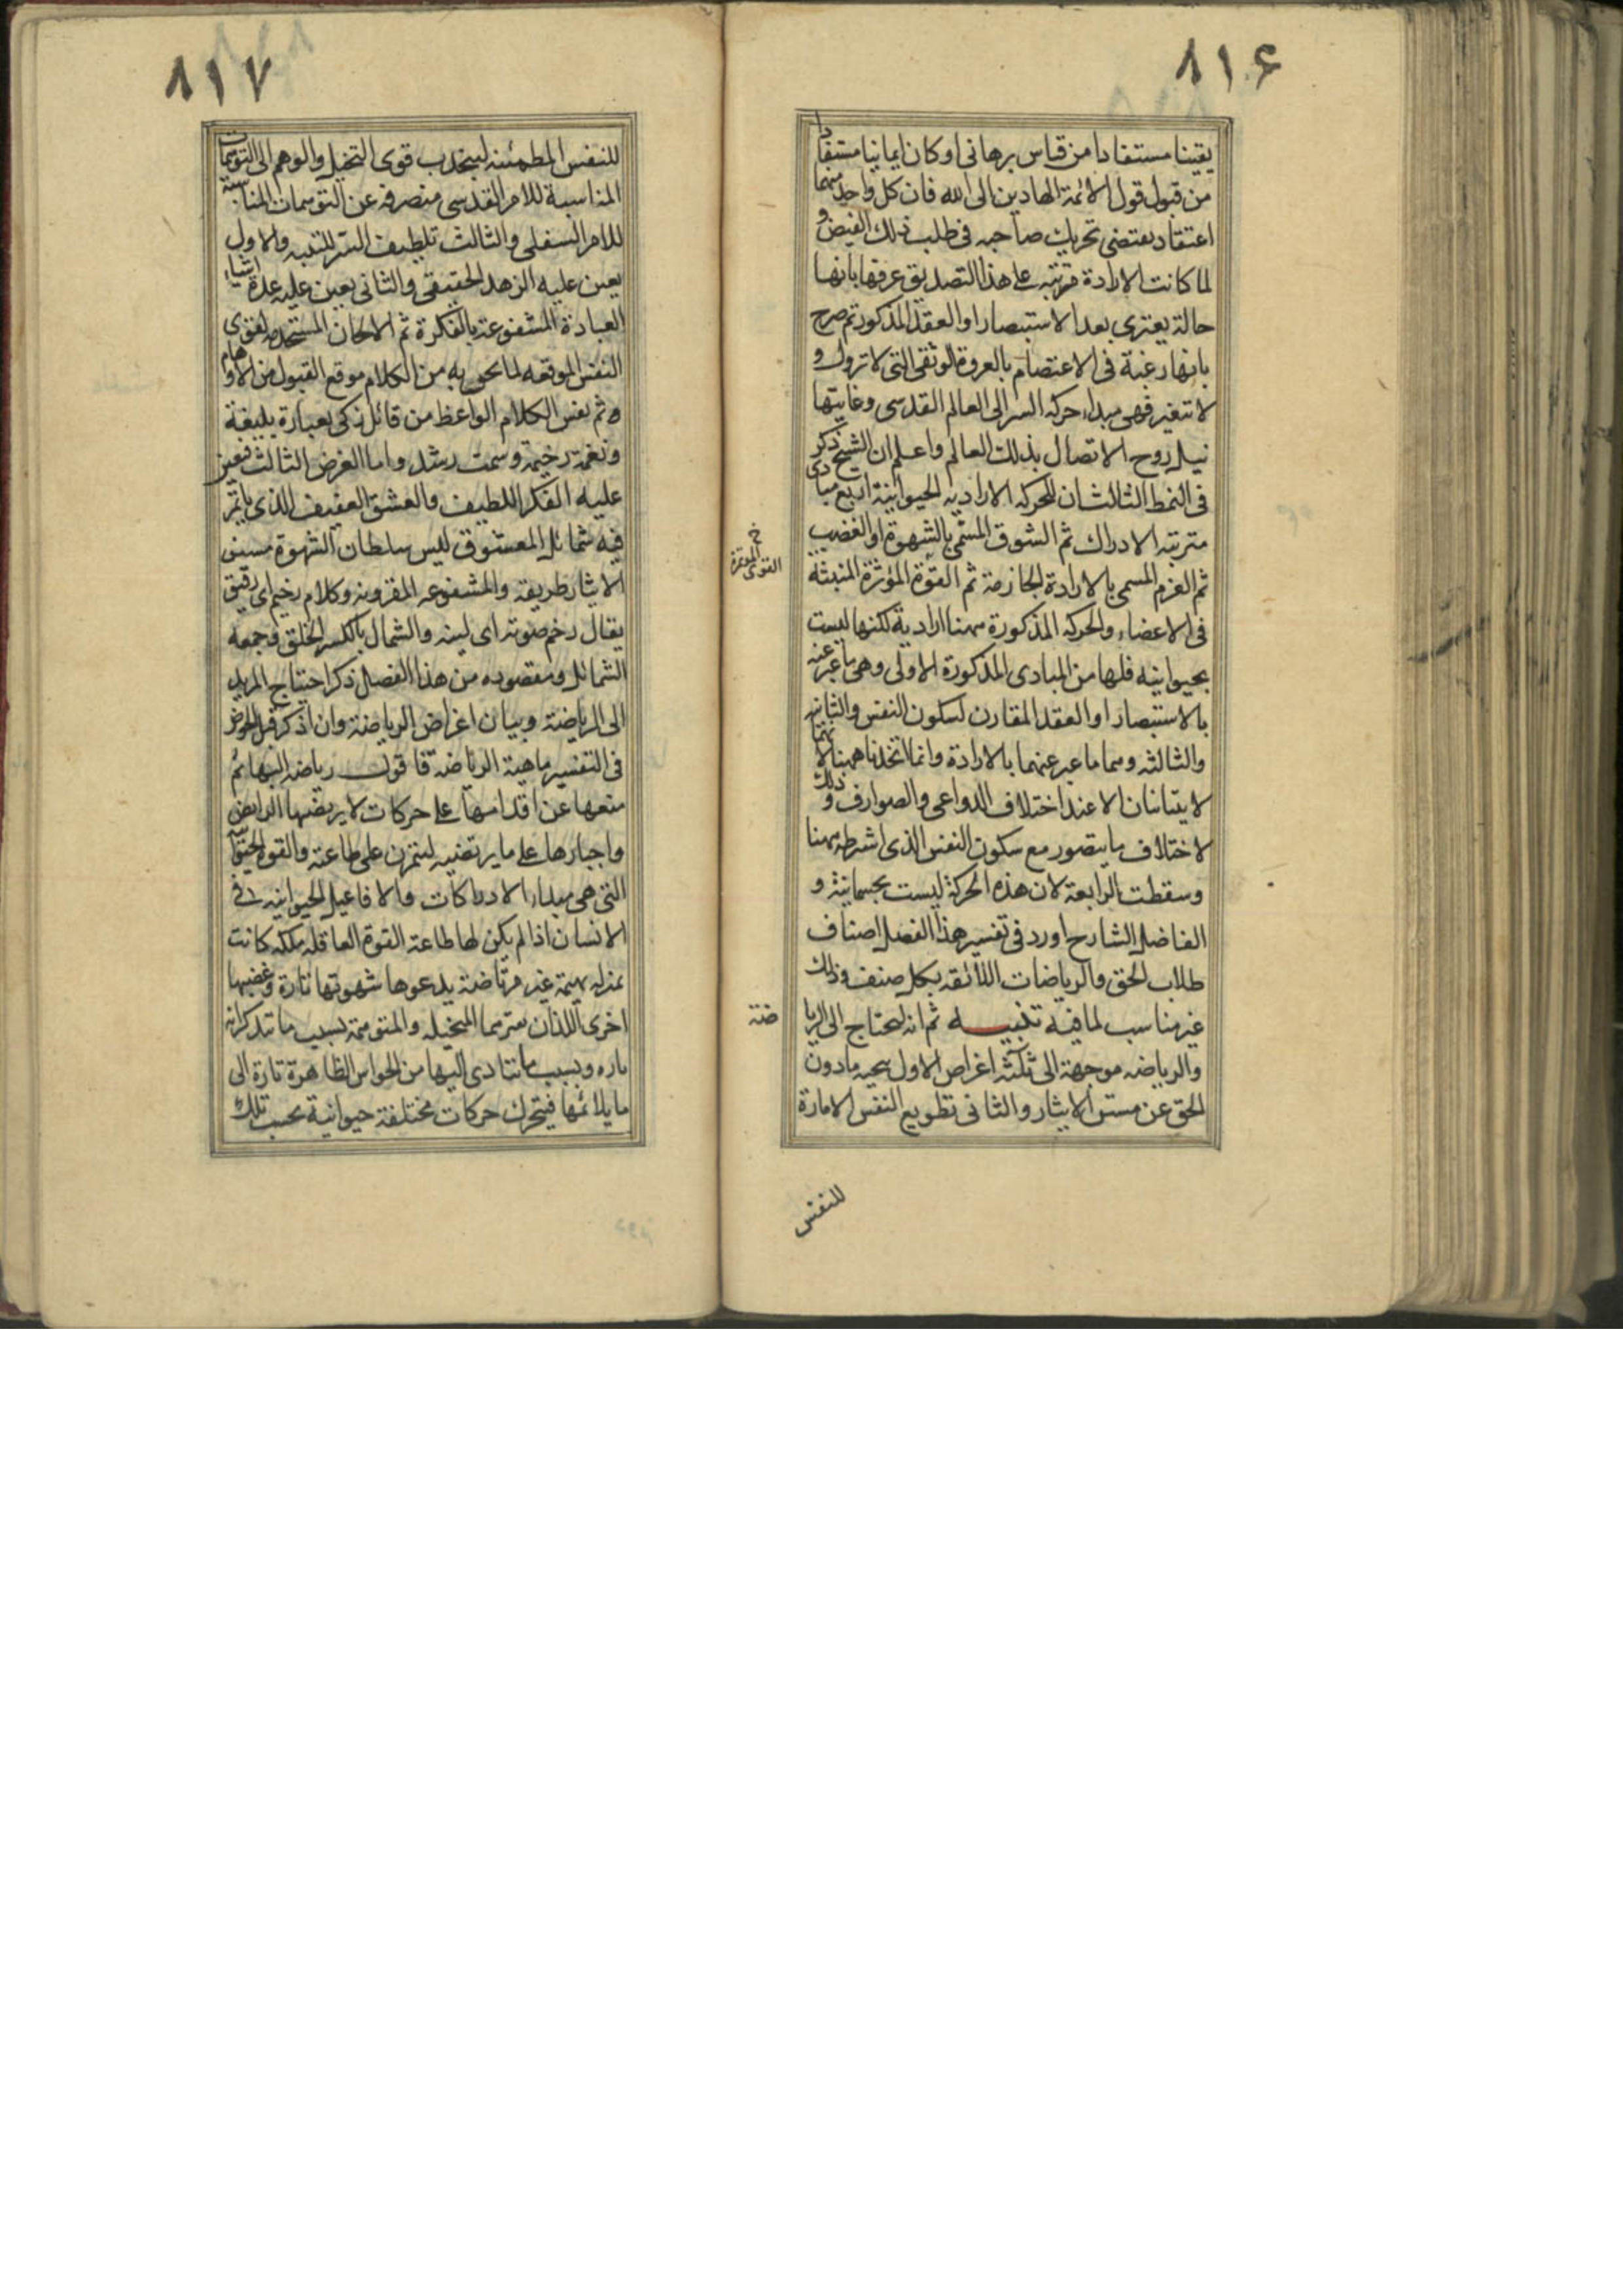 ٨١۶
يقينا مستفادا من قياس برهانى او كان ايمانيا مستفادا
من قبول قول الائمة الهادين الى الله فان كل واحد منهما
اعتقاد يقتضى تحريك صاحبه فى طلب ذلك الفيض و
لما كانت الارادة مرتبه على هذا التصديق عرفها بانها
حالة يعترى بعد الاستبصار او العقد المذكور ثم صرح
بانها رغبة فى الاعتصام بالعروة الوثقى التى لا تزول و
لا تتغير فهى مبداء حركه السر الى العالم القدسى وغايتها
نيل روح الاتصال بذلك العالم واعلم ان الشيخ ذكر
فى النمط الثالث ان للحركه الاراديه الحيوانية اربع مبادى
مترتبه الادراك ثم الشوق المسمى بالشهوة او الغضب
ثم العزم المسمى بالارادة الجازمة ثم القوة المؤثرة المنبثه
فى الاعضاء والحركه المذكورة ههنا ارادية لكنها ليست
بحيوانيه فلها من المبادى المذكورة الاولى وهى ما عبر عنه
بالاستبصار او العقد المقارن لسكون النفس والثانيه
والثالثه وهما ما عبر عنهما بالارادة وانما اتحدتا ههنا لانهما
لا يتباينان الا عند اختلاف الدواعى والصوارف وذلك
لاختلاف ما يتصور مع سكون النفس الذى اشرطه ههنا
وسقطت الرابعة لان هذه الحركة ليست بجسمانية و
الفاضل الشارح اورد فى تفسير هذا الفصل اصناف
طلاب الحق والرياضات اللائقه بكل صنف وذلك
غير مناسب لما فيه تنبيـــه ثم انه ليحتاج الى الريا
ضة
والرياضه موجهة الى ثلثه اغراض الاول تنحيه مادون
الحق عن مستن الايثار والثانى تطويع النفس الامارة
خ
القوى المؤثرة
للنفس
٨١٧
للنفس المطمئنه لينجذب قوى التخيل والوهم الى التوهمات
المناسبة للامر القدسى منصرفه عن التوهمات المناسبة
للامر السفلى والثالث تلطيف السر للتنبه والاول
يعين عليه الزهد الحقيقى والثانى يعين عليه عدة اشياء
العبادة المشفوعة بالفكرة ثم الالحان المستخدمه لقوى
النفس الموقعه لما لحن به من الكلام موقع القبول من الاوهام
ثم نفس الكلام الواعظ من قائل ذكى بعبارة بليغة
ونغمة رخيمة وسمت رشد واما الغرض الثالث فيعين
عليه الفكر اللطيف والعشق العفيف الذى يأتمر
فيه شمائل المعشوق ليس سلطان الشهوة مستن
الايثار طريقه والمشفوعه المقرونه وكلام رخيم اى رقيق
يقال رخم صوته اى لينه والشمال بالكسر الخلق وجمعه
الشمائل ومقصوده من هذا الفصل ذكر احتياج المريد
الى الرياضة وبيان اغراض الرياضة وان اذكر قبل الخوض
فى التفسير ماهية الرياضه فاقول رياضه البهائم
منعها عن اقدامها على حركات لا يرتضيها الرايض
واجبارها على ما يرتضيه لتتمرن على طاعته والقوة الحيوانية
التى هى مبداء الادراكات والافاعيل الحيوانيه فى
الانسان اذا لم يكن لها طاعة القوة العاقله ملكه كانت
بمنزله بهيمة غير مرتاضة يدعوها شهوتها تارة وغضبها
اخرى اللذان يعتريهما المتخيله والمتوهمة بسبب ما تتذكرانه
تاره وبسبب ما يتادى اليها من الحواس الظاهرة تارة الى
ما يلائمها فيتحرك حركات مختلفة حيوانية بحسب تلك